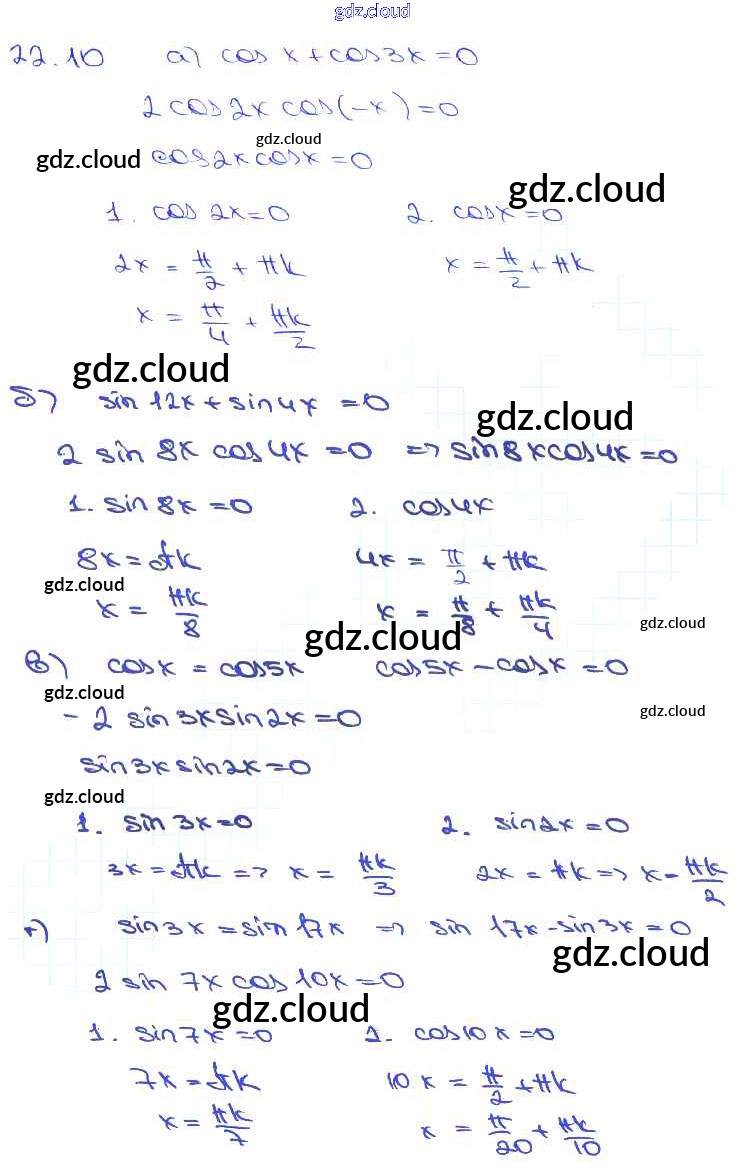 gdz.cloud
22.10 а) cos x + cos 3x = 0
2 cos 2x cos(-x) = 0
gdz.cloud
gdz.cloud cos 2x cos x = 0
gdz.cloud
1. cos 2x = 0 2. cos x = 0
2x = π/2 + πk x = π/2 + πk
x = π/4 + πk/2
gdz.cloud
б) sin 12x + sin 4x = 0
gdz.cloud
2 sin 8x cos 4x = 0 => sin 8x cos 4x = 0
1. sin 8x = 0 2. cos 4x
8x = πk 4x = π/2 + πk
gdz.cloud
x = πk/8 x = π/8 + πk/4
gdz.cloud
gdz.cloud
в) cos x = cos 5x cos 5x - cos x = 0
gdz.cloud
gdz.cloud
-2 sin 3x sin 2x = 0
sin 3x sin 2x = 0
gdz.cloud
1. sin 3x = 0 2. sin 2x = 0
3x = πk => x = πk/3 2x = πk => x = πk/2
г) sin 3x = sin 17x => sin 17x - sin 3x = 0
gdz.cloud
2 sin 7x cos 10x = 0
gdz.cloud
1. sin 7x = 0 2. cos 10x = 0
7x = πk 10x = π/2 + πk
x = πk/7 x = π/20 + πk/10